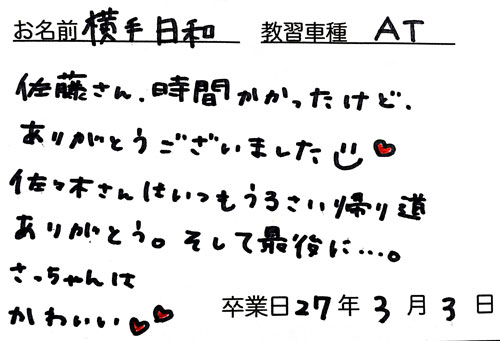 お名前 横手日和 教習車種 AT
佐藤さん、時間かかったけど、
ありがとうございました
佐々木さんはいつもうるさい帰り道
ありがとう。そして最後に…。
さっちゃんは
かわいい
卒業日27年3月3日